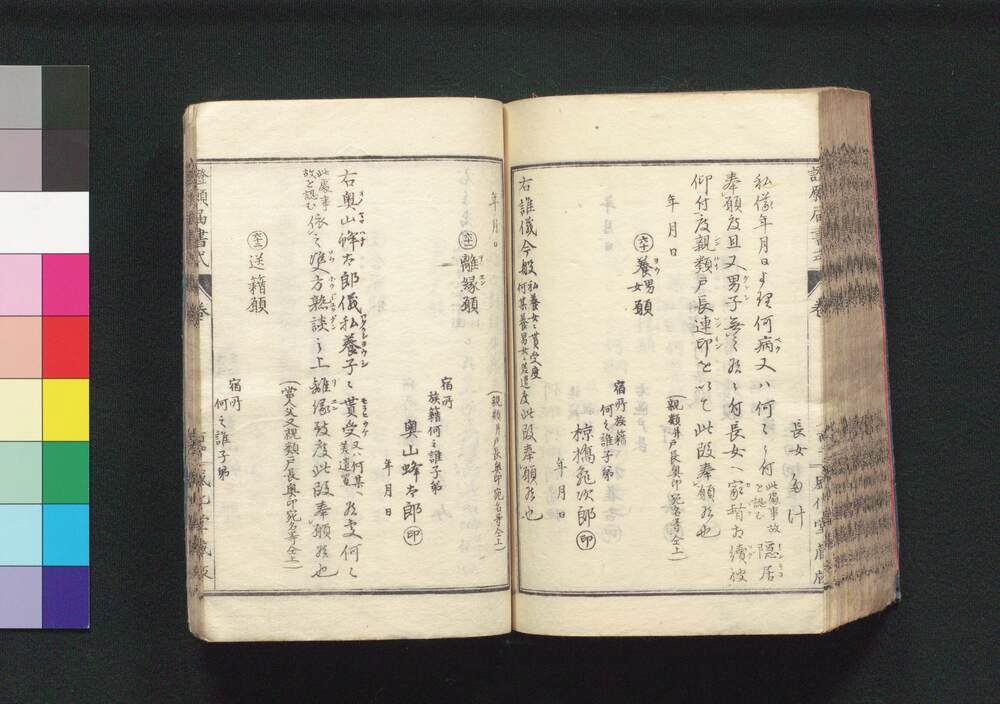 長女 多計
私儀年月日ヨリ何病又ハ何之々ニ付此處事故を認む隠居
奉願度且又男子無之候ニ付長女ヘ家督相續被
仰付度親類戸長連印を以て此段奉願候也
年月日
（親類并戸長奥印宛名等仝上）
養男女願
宿所族籍
何之誰子弟
椋橋亀次郎 印
年月日
右誰儀今般私養女ニ貰受度何某養男女ニ差遣度此段奉願候也
年月日
（親類并戸長奥印宛名等仝上）
離縁願
宿所
族籍何之誰子弟
奥山蜂太郎 印
年月日
右奥山蜂太郎儀私養子ニ貰受又ハ何某ヘ差遣置候處何々
此處事故を認む依之雙方熟談之上離縁致度此段奉願候也
（當人父又親類戸長奥印宛名等仝上）
送籍願
宿所
何之誰子弟